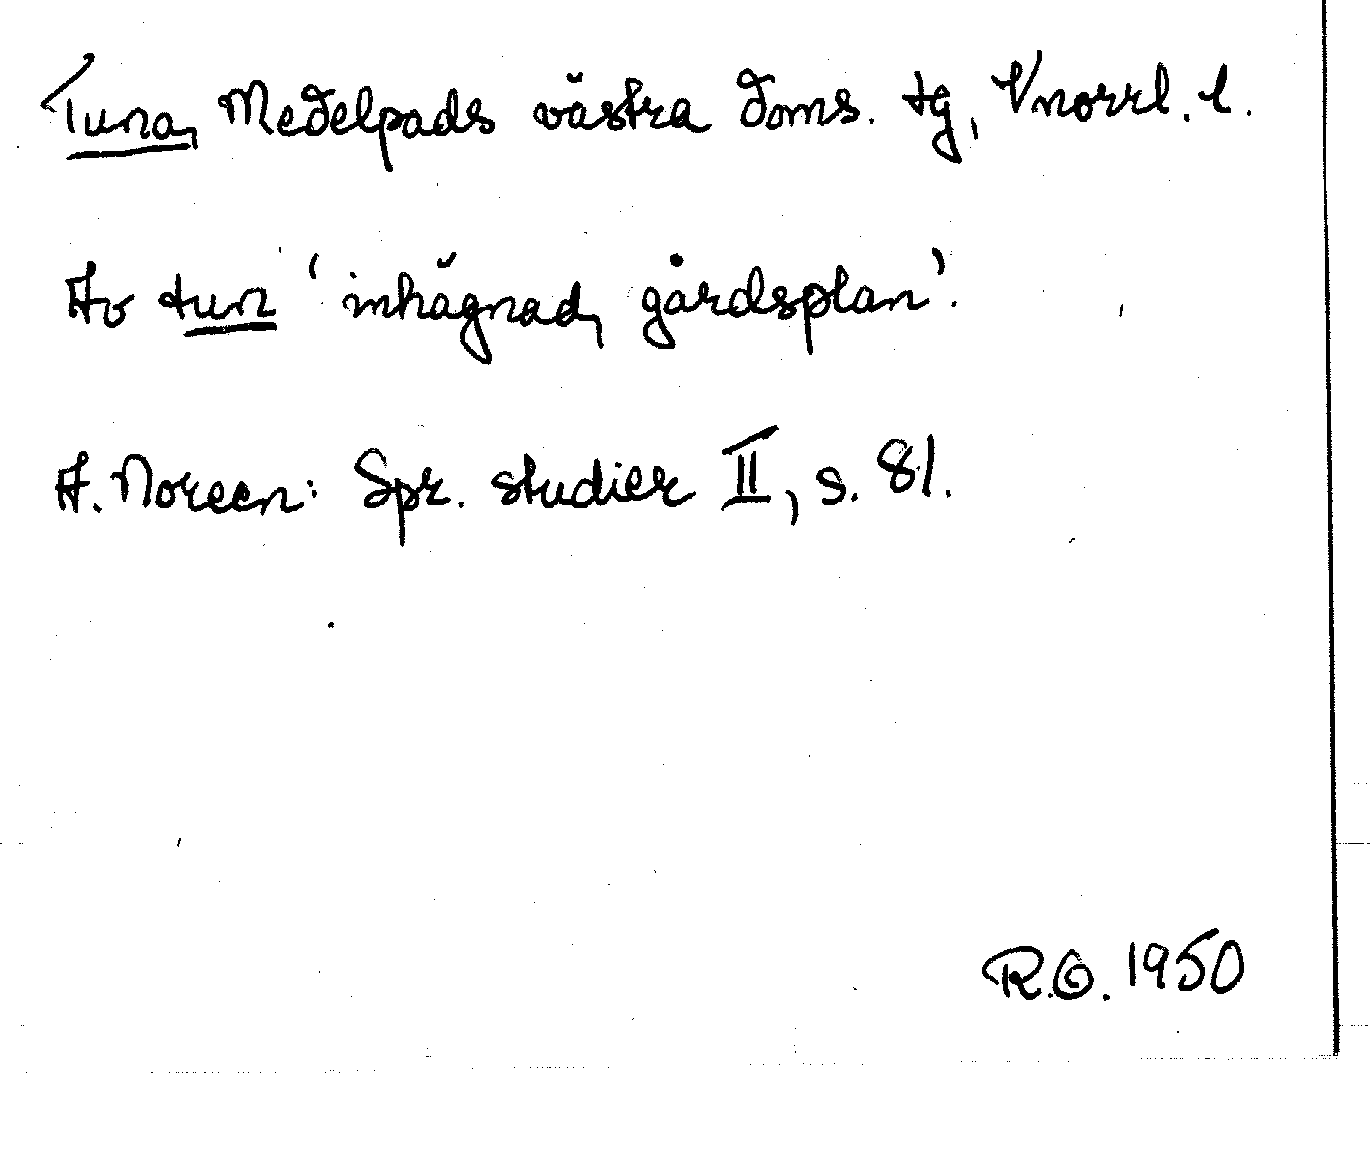 Tuna, Medelpads västra doms. tg, Vnorrl. l.
Av tun 'inhägnad, gårdsplan'.
A. Noreen: Spr. studier II, s. 81.
R.G. 1950